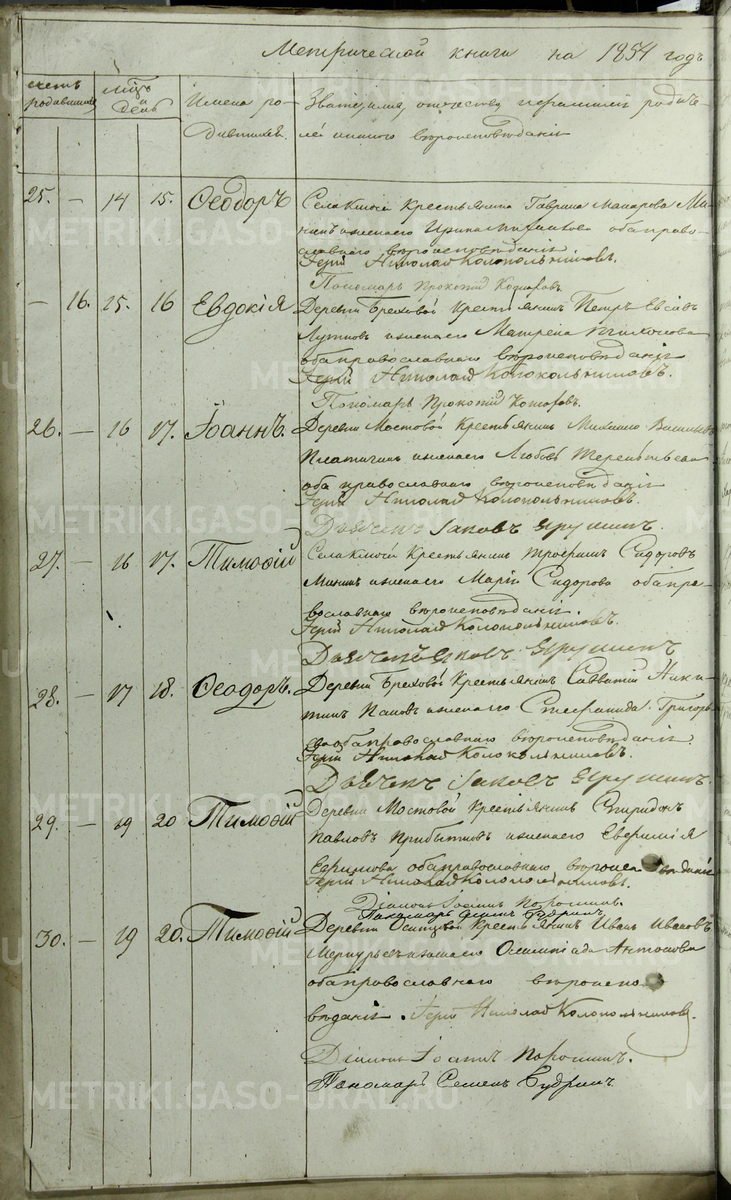 Метрической книги на 1854 годъ
счетъ родившихся
мѣц. и день
Имена родившихся.
Званіе, имя, отчество и фамилія родителей и какого вѣроисповѣданія
25. — 14 15. Ѳеодоръ
Села Крестьянинъ Гаврила Макаровъ Ми-
нинъ и жена его Ирина оба право-
славнаго вѣроисповѣданія
Іерей Николай Колокольниковъ.
Пономарь Прокопій
— 16. 15. 16 Евдокія
Деревни Бреховой Крестьянинъ Петръ
и жена его Матрена
оба православнаго вѣроисповѣданія
Іерей Николай Колокольниковъ.
Пономарь Прокопій
26. — 16 17. Іоаннъ.
Деревни Мостовой Крестьянинъ Михаилъ Васильевъ
и жена его Любовь Терентьева
оба православнаго вѣроисповѣданія
Іерей Николай Колокольниковъ.
Дьячекъ Іаковъ
27. — 16 17. Тимоѳій
Села Крестьянинъ Трофимъ Сидоровъ
Мининъ и жена его Марія Сидорова оба пра-
вославнаго вѣроисповѣданія.
Іерей Николай Колокольниковъ.
Дьячекъ Яковъ
28. — 17 18. Ѳеодоръ.
Деревни Бреховой Крестьянинъ Савватій Ники-
тинъ Пановъ и жена его Стефанида Григорь-
ева оба православнаго вѣроисповѣданія
Іерей Николай Колокольниковъ.
Дьячекъ Іаковъ
29. — 19 20 Тимоѳій
Деревни Мостовой Крестьянинъ Спиридонъ
Павловъ Прибытковъ и жена его Евфимія
Ефимова оба православнаго вѣроисповѣданія
Іерей Николай Колокольниковъ.
Діаконъ Іоаннъ Порошинъ.
Пономарь Семенъ Будринъ
30. — 19 20. Тимоѳій
Деревни Осинцовой Крестьянинъ Иванъ Ивановъ
Меркурьевъ и жена его Олимпіада Антонова
оба православнаго вѣроиспо-
вѣданія. Іерей Николай Колокольниковъ.
Діаконъ Іоаннъ Порошинъ.
Пономарь Семенъ Будринъ.
METRIKI.GASO-URAL.RU